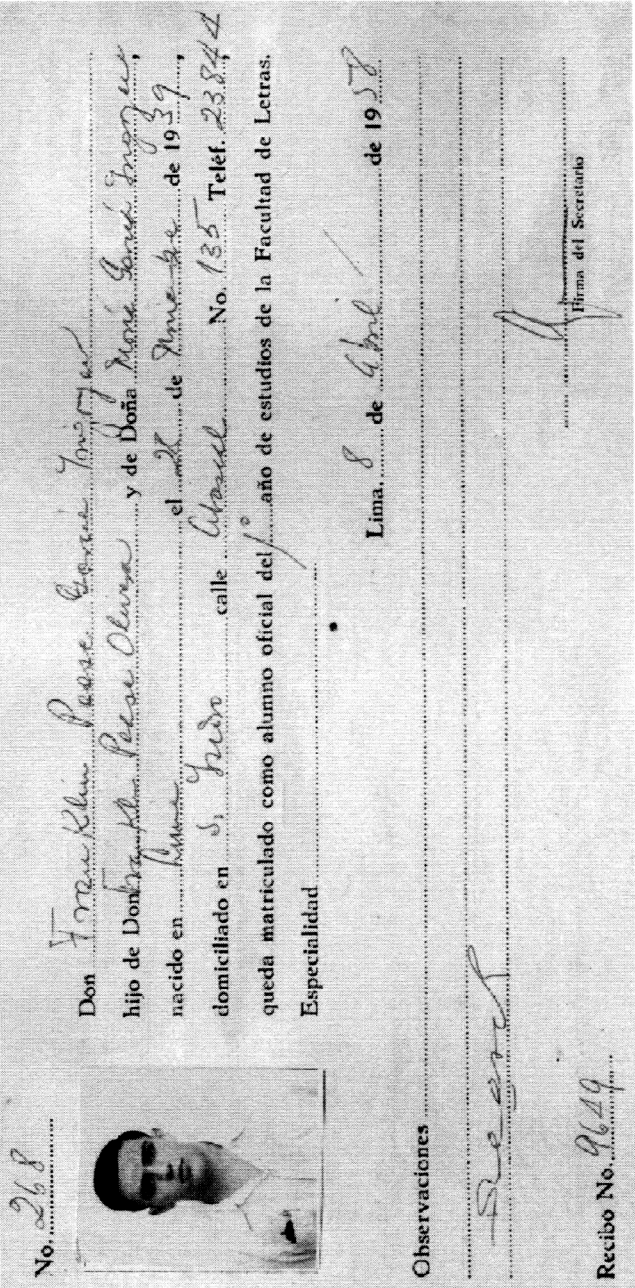 No. 268
Don Franklin Pease García Yrigoyen
hijo de Don Franklin Pease Olivera y de Doña María García Yrigoyen,
nacido en Lima el 28 de Nbre de 1939,
domiciliado en S. Isidro calle No. 135 Teléf. 23844,
queda matriculado como alumno oficial del 1° año de estudios de la Facultad de Letras.
Especialidad
Lima, 8 de Abril de 1958
Observaciones
Firma del Secretario
Recibo No. 9649